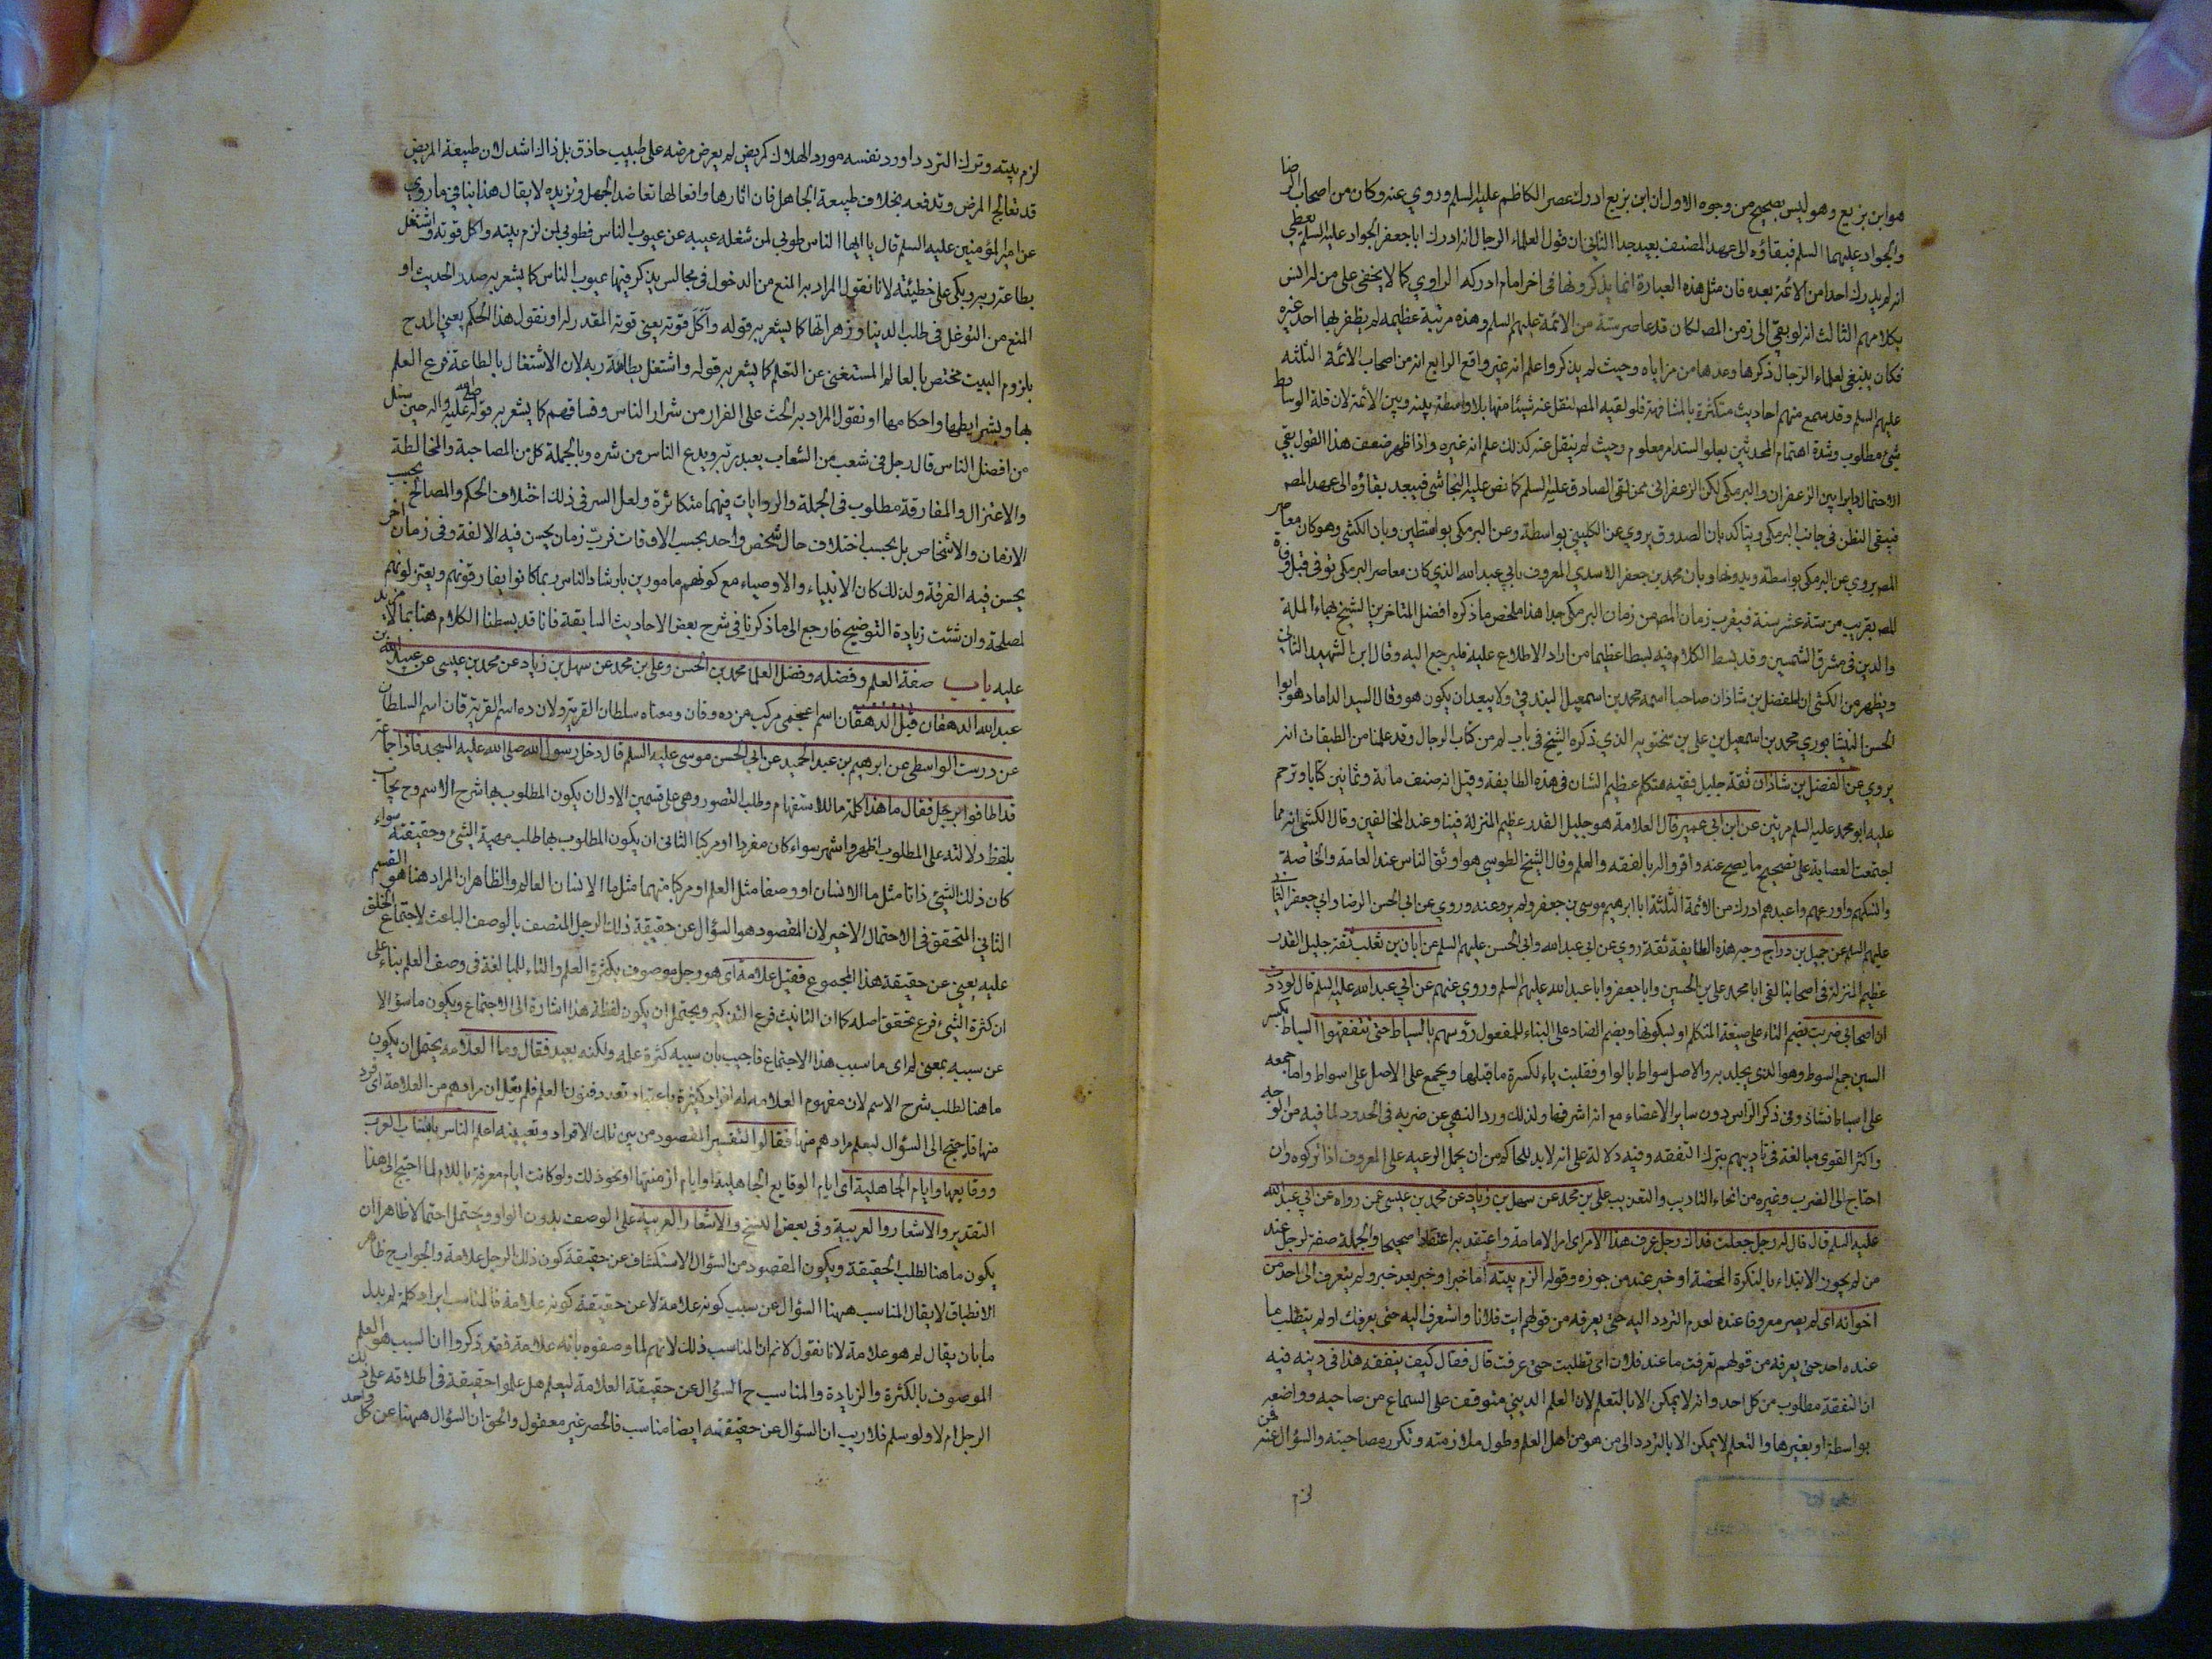 هو ابن بزيع وهو ليس بصحيح من وجوه الاول ان ابن بزيع ادرك عصر الكاظم عليه السلم وروي عنه وكان من اصحاب الرضا
والجواد عليهما السلم فبقاؤه الى عهد المصنف بعيد جدا الثاني ان قول العلماء الرجال انه ادرك ابا جعفر الجواد عليه السلم يعطي
انه لم يدرك احدا من الائمة بعده فان مثل هذه العبارة انما يذكرونها في اخر امام ادركه الراوي كما لا يخفى على من له انس
بكلامهم الثالث انه لو بقي الى زمن المص لكان قد عاصر ستة من الائمة عليهم السلم وهذه مرتبة عظيمه لم يظفر بها احد غيره
فكان ينبغي لعلماء الرجال ذكرها وعدها من مزاياه وحيث لم يذكروا علم انه غير واقع الرابع انه من اصحاب الائمة الثلثه
عليهم السلم وقد سمع منهم احاديث متكثرة بالمشافهة فلو لقيه المص لنقل عنه شيئا منها بلا واسطة بينه وبين الائمة لان قلة الوسائط
شيء مطلوب وشدة اهتمام المحدثين بعلو السند امر معلوم وحيث لم ينقل عنه كذلك علم انه غيره واذا ظهر ضعف هذا القول بقي
الاحتمال دايرا بين الزعفران والبرمكي لكن الزعفراني ممن لقي الصادق عليه السلم كما نص عليه النجاشي فيبعد بقاؤه الى عهد المص
فيبقى الظن في جانب البرمكي ويتاكد بان الصدوق يروي عن الكليني بواسطة وعن البرمكي بواسطتين وبان الكشي وهو كان معاصر
المص يروي عن البرمكي بواسطة وبدونها وبان محمد بن جعفر الاسدي المعروف بابي عبد الله الذي كان معاصر البرمكي توفي قبل وفاة
المص بقريب من ستة عشر سنة فيقرب زمان المص من زمان البرمكي جدا هذا ملخص ما ذكره افضل المتاخرين الشيخ بهاء الملة
والدين في مشرق الشمسين وقد بسط الكلام فيه بسطا عظيما من اراد الاطلاع عليه فليرجع اليه وقال ابن الشهيد الثاني
ويظهر من الكشي ان للفضل بن شاذان صاحبا اسمه محمد بن اسمعيل البندقي ولا يبعد ان يكون هو وقال السيد الداماد هو ابو
الحسن النيشابوري محمد بن اسمعيل بن علي بن سختويه الذي ذكره الشيخ في باب لم من كتاب الرجال وقد علمنا من الطبقات انه
يروي عن الفضل بن شاذان ثقة جليل فقيه متكلم عظيم الشان في هذه الطايفة وقيل انه صنف مائة وثمانين كتابا وترحم
عليه ابو محمد عليه السلم مرتين عن ابن ابي عمير قال العلامة هو جليل القدر عظيم المنزلة فينا وعند المخالفين وقال الكشي انه مما
اجتمعت العصابة على تصحيح ما يصح عنه واقروا له بالفقه والعلم وقال الشيخ الطوسي هو اوثق الناس عند العامة والخاصة
وانسكهم واورعهم واعبدهم ادرك من الائمة الثلثة ابا ابرهيم موسى بن جعفر ولم يرو عنه وروي عن ابي الحسن الرضا وابي جعفر الثاني
عليهم السلم عن جميل بن دراج وجه هذه الطايفة ثقة روي عن ابي عبد الله وابي الحسن عليهم السلم عن ابان بن تغلب ثقة جليل القدر
عظيم المنزلة في اصحابنا لقي ابا محمد علي بن الحسين وابا جعفر وابا عبد الله عليهم السلم وروي عنهم عن ابي عبد الله عليه السلم قال لوددت
ان اصحابي ضربت بضم التاء على صيغة المتكلم او بسكونها وبضم الضاد على البناء للمفعول رؤسهم بالسياط حتى تتفقهوا السياط بكسر
السين جمع السوط وهو الذي يجلد به والاصل سواط بالواو فقلبت ياء لكسرة ما قبلها ويجمع على الاصل على اسواط واما جمعه
على اسياط فشاذ وفي ذكر الراس دون ساير الاعضاء مع انه اشرفها ولذلك ورد النهي عن ضربه في الحدود لما فيه من الوجه
واكثر القوى مبالغة في تاديبهم بترك التفقه وفيه دلالة على انه لا بد للحاكم من ان يحمل الرعيه على المعروف اذا تركوه وان
احتاج الى الضرب وغيره من انحاء التاديب والتعذيب علي بن محمد عن سهل بن زياد عن محمد بن عيسى عمن رواه عن ابي عبد الله
عليه السلم قال قال له رجل جعلت فداك رجل عرف هذا الامر اي امر الامامة واعتقد به اعتقادا صحيحا والجملة صفة لرجل عند
من لم يجوز الابتداء بالنكرة المحضة او خبر عند من جوزه وقوله لزم بيته اما خبر او خبر بعد خبر ولم يتعرف الى احد من
اخوانه اي لم يصر معروفا عنده لعدم التردد اليه حتى يعرفه من قولهم ايت فلانا واستعرف اليه حتى يعرفك او لم يتطلب ما
عنده احد حتى يعرفه من قولهم تعرفت ما عند فلان اي تطلبت حتى عرفت قال فقال كيف يتفقه هذا في دينه فيه
ان التفقه مطلوب من كل احد وانه لا يمكن الا بالتعلم لان العلم الديني متوقف على السماع من صاحبه وواضعه
بواسطة او بغيرها والتعلم لا يمكن الا بالتردد الى من هو من اهل العلم وطول ملازمته وتكرر مصاحبته والسؤال عنه فمن
لزم
لزم بيته وترك التردد اورد نفسه مورد الهلاك كمريض لم يعرض مرضه على طبيب حاذق بل ذاك اشد لان طبيعة المريض
قد تعالج المرض وتدفعه بخلاف طبيعة الجاهل فان اثارها وافعالها تعاضد الجهل وتزيده لا يقال هذا ينافي ما روي
عن امير المؤمنين عليه السلم قال يا ايها الناس طوبى لمن شغله عيبه عن عيوب الناس فطوبى لمن لزم بيته واكل قوته واشتغل
بطاعة ربه وبكى على خطيئته لانا نقول المراد به المنع من الدخول في مجالس يذكر فيها عيوب الناس كما يشعر به صدر الحديث او
المنع من التوغل في طلب الدنيا وزهراتها كما يشعر به قوله واكل قوته يعني قوته المقدر له او نقول هذا الحكم يعني المدح
بلزوم البيت مختص بالعالم المستغني عن التعلم كما يشعر به قوله واشتغل بطاعة ربه لان الاشتغال بالطاعة فرع العلم
بها وبشرايطها واحكامها او نقول المراد به الحث على الفرار من شرار الناس وفساقهم كما يشعر به قوله صلى الله عليه واله حين سئل
من افضل الناس قال رجل في شعب من الشعاب يعبد ربه ويدع الناس من شره وبالجملة كل من المصاحبة والمخالطة
والاعتزال والمفارقة مطلوب في الجملة والروايات فيهما متكاثرة ولعل السر في ذلك اختلاف الحكم والمصالح بحسب
الازمان والاشخاص بل بحسب اختلاف حال شخص واحد بحسب الاوقات فرب زمان يحسن فيه الالفة وفي زمان اخر
يحسن فيه الفرقة ولذلك كان الانبياء والاوصياء مع كونهم مامورين بارشاد الناس ربما كانوا يفارقونهم ويعتزلونهم
لمصلحة وان شئت زيادة التوضيح فارجع الى ما ذكرنا في شرح بعض الاحاديث السابقة فانا قد بسطنا الكلام هنا بما لا مزيد
عليه باب صفة العلم وفضله وفضل العلما محمد بن الحسن وعلي بن محمد عن سهل بن زياد عن محمد بن عيسى عن عبيد الله بن
عبد الله الدهقان قيل الدهقان اسم اعجمي مركب من ده وقان ومعناه سلطان القرية ولان ده اسم القرية وقان اسم السلطان
عن درست الواسطي عن ابرهيم بن عبد الحميد عن ابي الحسن موسى عليه السلم قال دخل رسول الله صلى الله عليه المسجد فاذا جماعة
قد اطافوا برجل فقال ما هذا كلمة ما للاستفهام وطلب التصور وهي على قسمين الاول ان يكون المطلوب بها شرح الاسم وح يجاب
بلفظ دلالته على المطلوب اظهر واشهر سواء كان مفردا او مركبا الثاني ان يكون المطلوب بها طلب مهية الشيء وحقيقته سواء
كان ذلك الشيء ذاتا مثل ما الانسان او وصفا مثل العلم او مركبا منهما مثل ما الانسان العالم والظاهر ان المراد هنا هو القسم
الثاني المتحقق في الاحتمال الاخير لان المقصود هو السؤال عن حقيقة ذلك الرجل المتصف بالوصف الباعث لاجتماع الخلق
عليه يعني عن حقيقة هذا المجموع فقيل علامة اي هو رجل موصوف بكثرة العلم والتاء للمبالغة في وصف العلم بناء على
ان كثرة الشيء فرع تحقق اصله كما ان التانيث فرع التذكير ويحتمل ان يكون لفظة هذا اشارة الى الاجتماع ويكون ما سؤالا
عن سببه بمعنى لم اي ما سبب هذا الاجتماع فاجيب بان سببه كثرة علمه ولكنه بعيد فقال وما العلامه يحتمل ان يكون
ما هنا لطلب شرح الاسم لان مفهوم العلامه له افراد كثيرة باعتبار تعدد فنون العلم فلم يعلم ان مرادهم من العلامة اي فرد
منها فاحتيج الى السؤال ليعلم مرادهم منها فقالوا التفسير المقصود من بين تلك الافراد وتعيينه اعلم الناس بانساب العرب
ووقايعها وايام الجاهلية اي ايام الوقايع الجاهلية او ايام ازمنتها او نحو ذلك ولو كانت ايام معرفة باللام لما احتيج الى هذا
التقدير والاشعار والعربية وفي بعض النسخ والاشعار العربية على الوصف بدون الواو ويحتمل احتمالا ظاهرا ان
يكون ما هنا لطلب الحقيقة ويكون المقصود من السؤال الاستكشاف عن حقيقة كون ذلك الرجل علامة والجواب ح ظاهر
الانطباق لا يقال المناسب ههنا السؤال عن سبب كونه علامة لا عن حقيقة كونه علامة فالمناسب ايراد كلمة لم بدل
ما بان يقال لم هو علامة لانا نقول لانم ان المناسب ذلك لانهم لما وصفوه بانه علامة فقد ذكروا ان السبب هو العلم
الموصوف بالكثرة والزيادة والمناسب ح السؤال عن حقيقة العلامة ليعلم هل علموا حقيقة في اطلاقه على ذلك
الرجل ام لا ولو سلم فلا ريب ان السؤال عن حقيقته ايضا مناسب فالحصر غير معقول والحق ان السؤال ههنا عن كل واحد